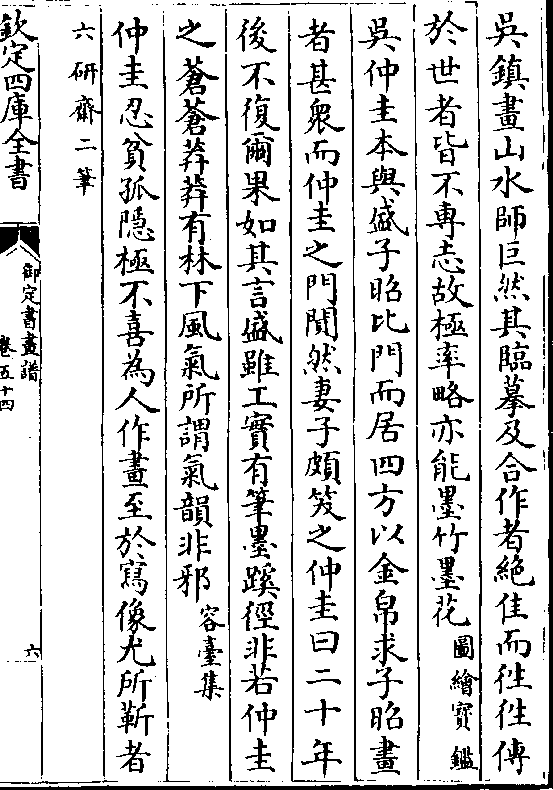 吳鎮畫山水師巨然其臨摹及合作者絶佳而徃徃傳
於世者皆不專志故極率略亦能墨竹墨花圖繪寳鑑
吳仲圭本與盛子昭比門而居四方以金帛求子昭畫
者甚衆而仲圭之門閴然妻子頗笑之仲圭曰二十年
後不復爾果如其言盛雖工實有筆墨蹊徑非若仲圭
之蒼蒼莽莽有林下風氣所謂氣韻非邪容臺集
仲圭忍貧孤隐極不喜為人作畫至於寫像尤所靳者
六研齋二筆
欽定四庫全書
御定書畫譜
卷五十四
六